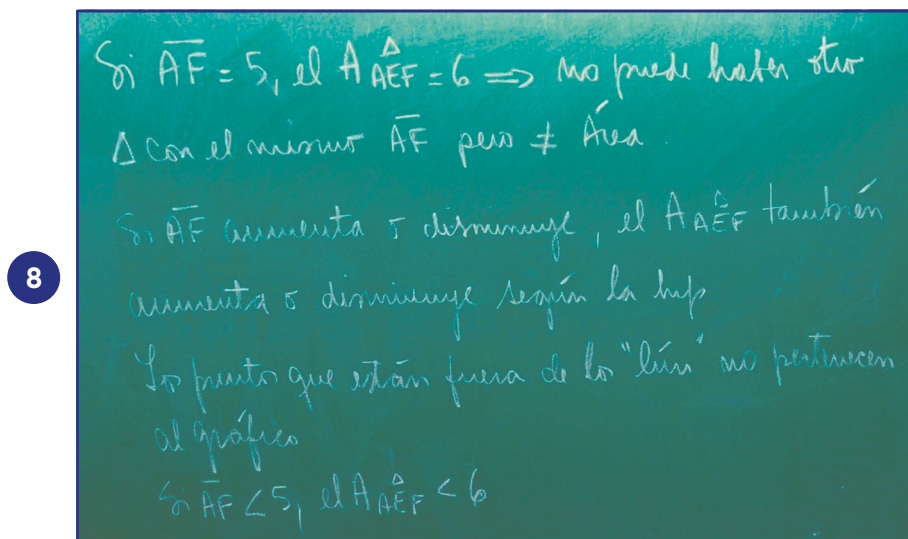 Si A̅F̅ = 5, el A AÊF = 6 ⇒ no puede haber otro
Δ con el mismo A̅F̅ pero ≠ Área.
Si A̅F̅ aumenta o disminuye, el A AÊF también
8
aumenta o disminuye según la hip
Los puntos que están fuera de la "lín" no pertenecen
al gráfico
Si A̅F̅ < 5, el A AÊF < 6